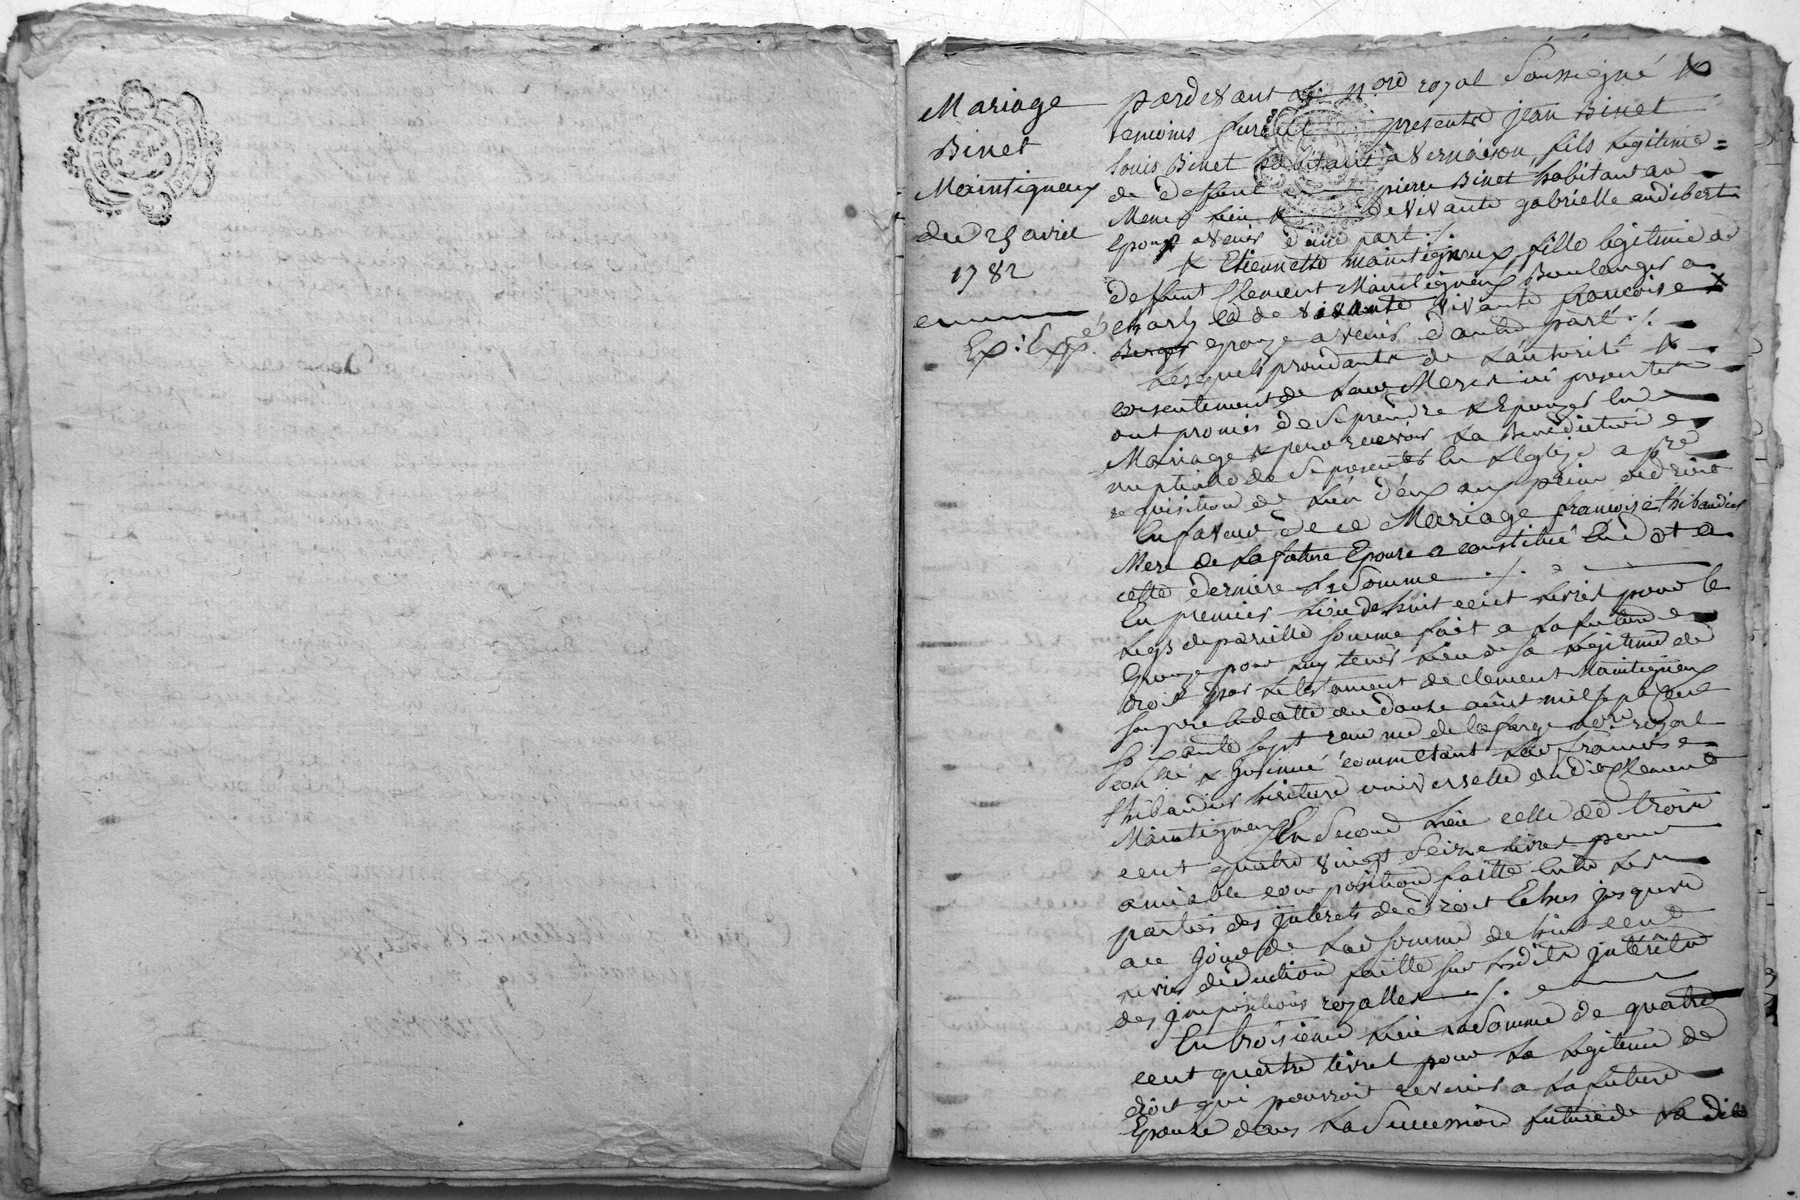 Mariage
Binet
Maintigneux
du 25 avril
1782
Ex: Exp.
pardevant le no.re royal Soussigné &
temoins furent presents jean Binet
louis Binet habitant a vernaison, fils legitime
de deffunt pierre Binet habitant au
Meme lieu & de vivante gabrielle audibert
Epoux avenir d'une part ./.
& Etiennette maintigneux fille legitime de
deffunt Clement Maintigneux Boulanger a
charly & de vivante francoise
epouze avenir d'autre part ./.
Lesquels procedants de L'autorité &
consentement de Leurs Meres ici presentes
ont promis de Se prendre & Epouzer en
Mariage & pour recevoir La Benediction
nuptialle de Se presenter en L'Eglize a p.re
requisition de L'un d'eux aux peines de droit
En faveur de ce Mariage francoise thibaudier
Mere de La future Epouze a constitué En dot a
cette derniere La Somme ./.
En premier Lieu de huit cent Livres pour le
Legs de pareille somme fait a La future
Epouze pour luy tenir Lieu de Sa Legitime de
droit par Le testament de Clement Maintigneux
Son pere En datte du douze août mil Sept Cent
So ixante Sept recu me de lafarge no.re royal
controllé & Insinué commettant Lad. francoise
thibaudier heritiere universelle dud. Clement
Maintigneux En Second Lieu celle de trois
cent quatre vingt Seize Livres pour
amiable composition faitte Entre Les
parties des interets de droit Echus jusqu'a
ce jour de Lad. somme de huit cent
Livres deduction faitte sur Lesdits interets
des jmpositions royalles ./.
En troisieme Lieu La Somme de quatre
cent quatre Livres pour La Legitime de
droit qui pourroit revenir a La future
Epouze dans La Succession future de La dite